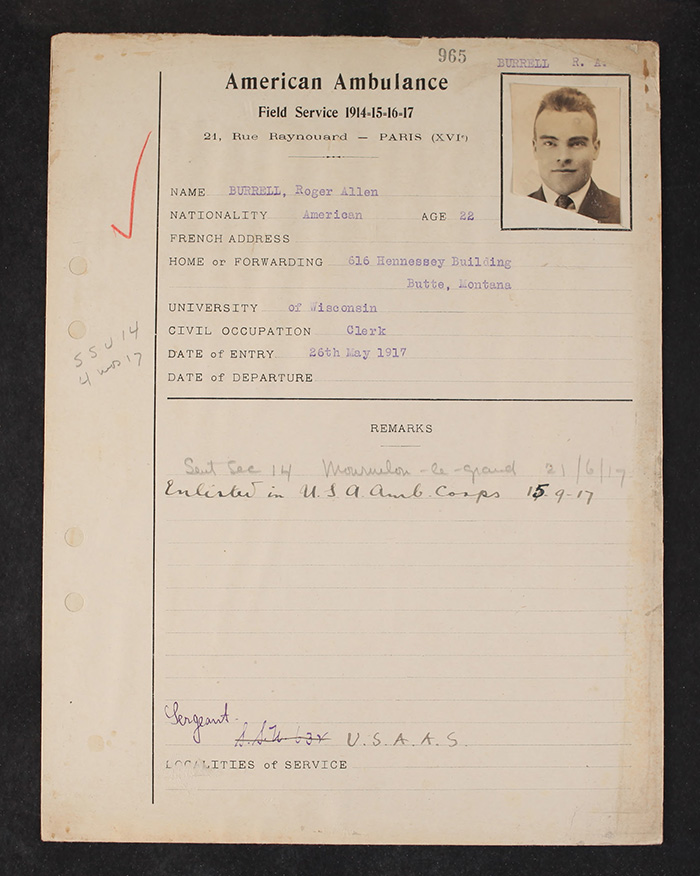 965
BURRELL R. A.
American Ambulance
Field Service 1914-15-16-17
21, Rue Raynouard — PARIS (XVIe)
NAME BURRELL, Roger Allen
NATIONALITY American AGE 22
FRENCH ADDRESS
HOME or FORWARDING 616 Hennessey Building
Butte, Montana
UNIVERSITY of Wisconsin
CIVIL OCCUPATION Clerk
DATE of ENTRY 26th May 1917
DATE of DEPARTURE
SSU 14
4 mos 17
REMARKS
Sent Sec 14 Mourmelon-le-grand 21/6/17
Enlisted in U.S.A. Amb. Corps 15-9-17
Sergeant
U.S.A.A.S.
LOCALITIES of SERVICE